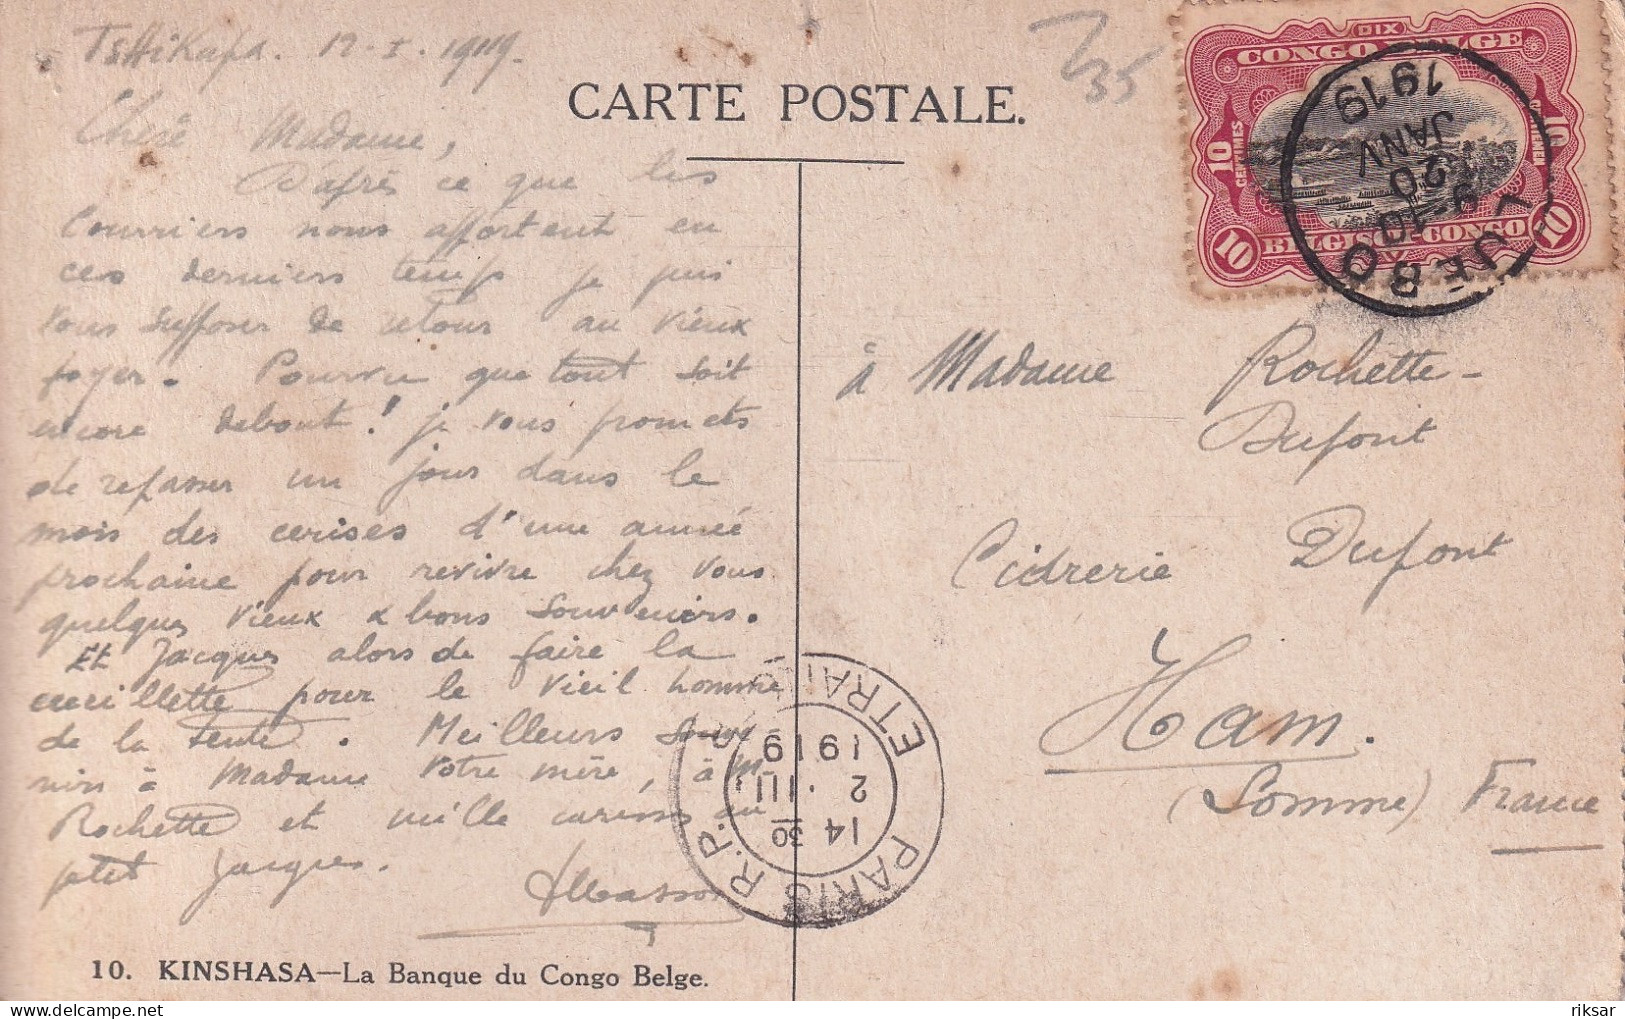 Tshikapa. 12-I-1919.
CARTE POSTALE.
Chère Madame,
D'après ce que les
Courriers nous apportent en
ces derniers temps je puis
vous supposer de retour au vieux
foyer. Pourvu que tout soit
encore debout! je vous promets
de repasser un jour dans le
mois des cerises d'une année
prochaine pour revivre chez vous
quelques vieux & bons souvenirs.
Et Jacques alors de faire la
cueillette pour le vieil homme
de la tente. Meilleurs souve-
nirs à Madame votre mère, à M.
Rochette et mille caresses au
petit Jacques.
Masson
10. KINSHASA—La Banque du Congo Belge.
DIX
CONGO BELGE
10 CENTIMES
10
BELGISCH CONGO
10 10
LUEBO
9-10
20
JANV
1919
à Madame Rochette-
Dupont
Cidrerie Dupont
Ham.
(Somme) France
PARIS R.P. ETRANGER
14 30
2 . III
1919
riksar